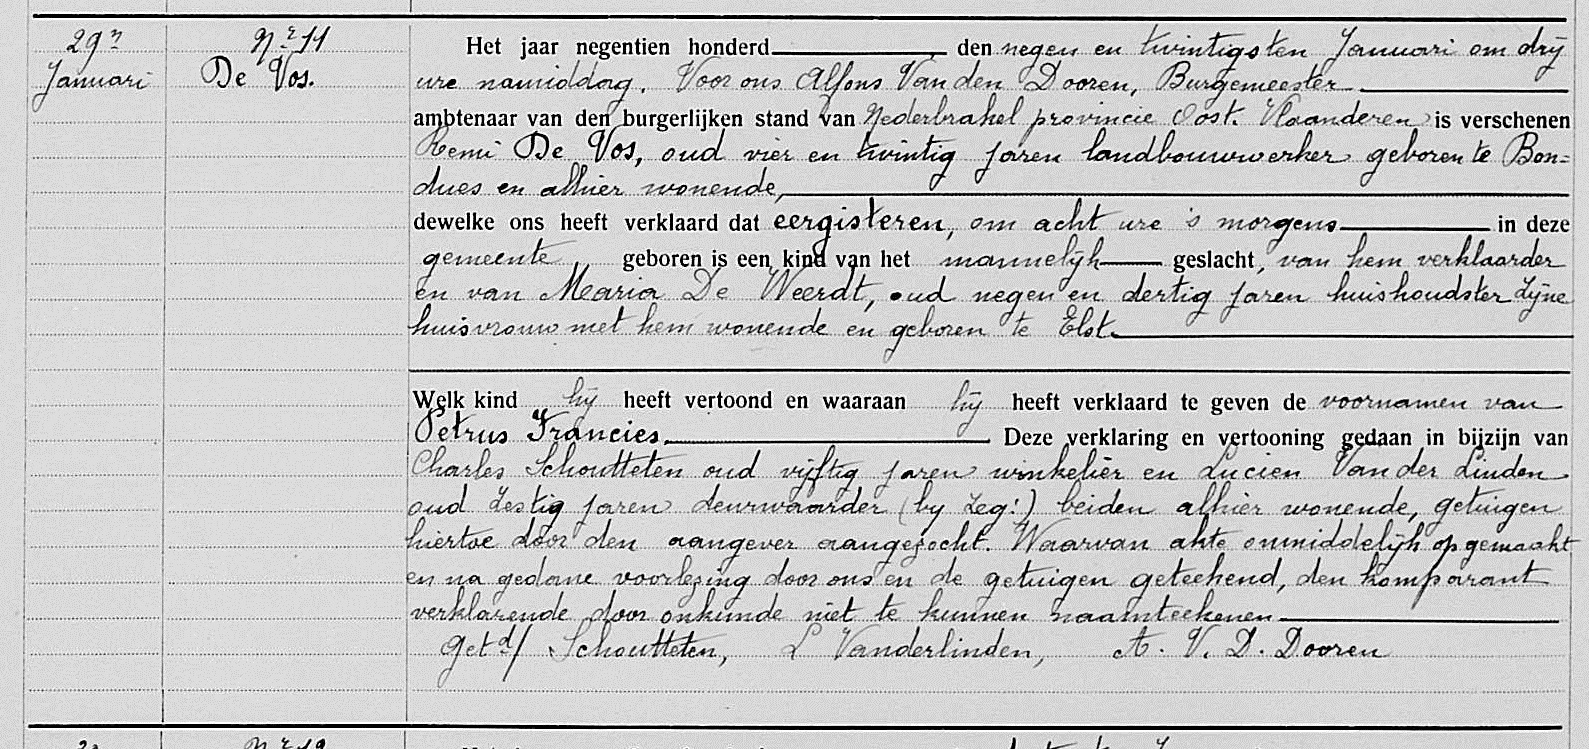 29n
Januari
Nr 11
De Vos.
Het jaar negentien honderd den negen en twintigsten Januari om drij
ure namiddag. Voor ons Alfons Van den Dooren, Burgemeester
ambtenaar van den burgerlijken stand van Nederbrakel provincie Oost. Vlaanderen is verschenen
Remi De Vos, oud vier en twintig jaren landbouwwerker geboren te Bon=
dues en alhier wonende,
dewelke ons heeft verklaard dat eergisteren, om acht ure 's morgens in deze
gemeente geboren is een kind van het mannelijk geslacht, van hem verklaarder
en van Maria De Weerdt, oud negen en dertig jaren huishoudster zijne
huisvrouw met hem wonende en geboren te Elst.
Welk kind hij heeft vertoond en waaraan hij heeft verklaard te geven de voornamen van
Petrus Francies. Deze verklaring en vertooning gedaan in bijzijn van
Charles Schoutteten oud vijftig jaren winkelier en Lucien Van der Linden
oud zestig jaren deurwaarder (by zeg:) beiden alhier wonende, getuigen
hiertoe door den aangever aangezocht. Waarvan akte onmiddelijk opgemaakt
en na gedane voorlezing door ons en de getuigen geteekend, den komparant
verklarende door onkunde niet te kunnen naamteekenen
Getd/ Schoutteten, L Vanderlinden, A. V. D. Dooren
Nr 12